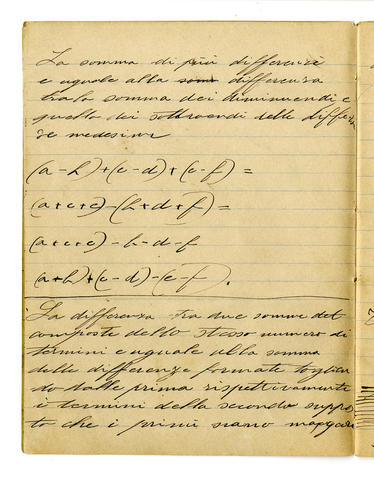 La somma di più differenze
e uguale alla som differenza
tra la somma dei diminuendi e
quella dei sottraendi delle differen
ze medesime
(a-b)+(c-d)+(e-f)=
(a+c+e)-(b+d+f)=
(a+c+e)-b-d-f
(a+b)+(c-d)-(e-f).
La differenza tra due somme det
composte dello stesso numero di
termini e uguale alla somma
delle differenze formate toglien
do dalle prima rispettivamente
i termini della seconda suppo
to che i primi siano maggiori